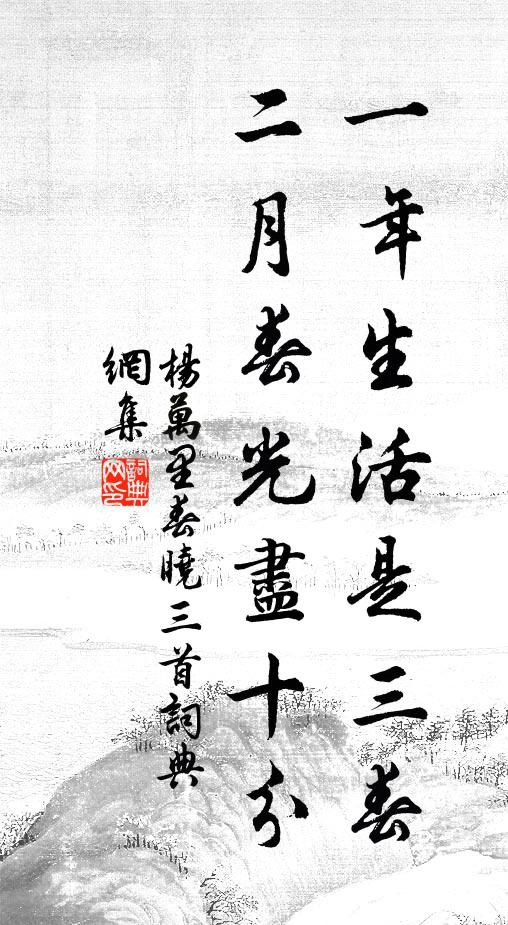 一年生活是三春
二月春光盡十分
楊萬里春曉三首詞典
網集
詞典
网印